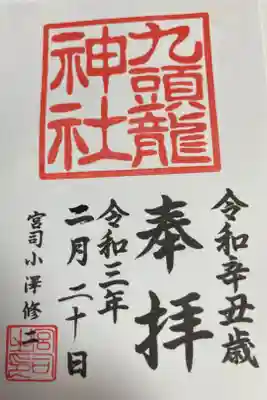 九頭龍
神社
令和辛丑歳
奉拝
令和三年
二月二十日
宮司小澤修二